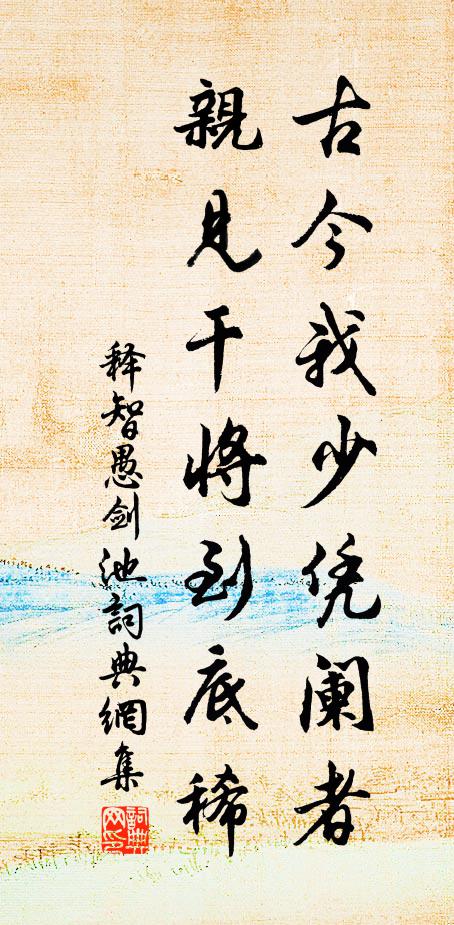 古今我少凭阑者
親見干将到底稀
释智愚剑池詞典網集
詞典網印